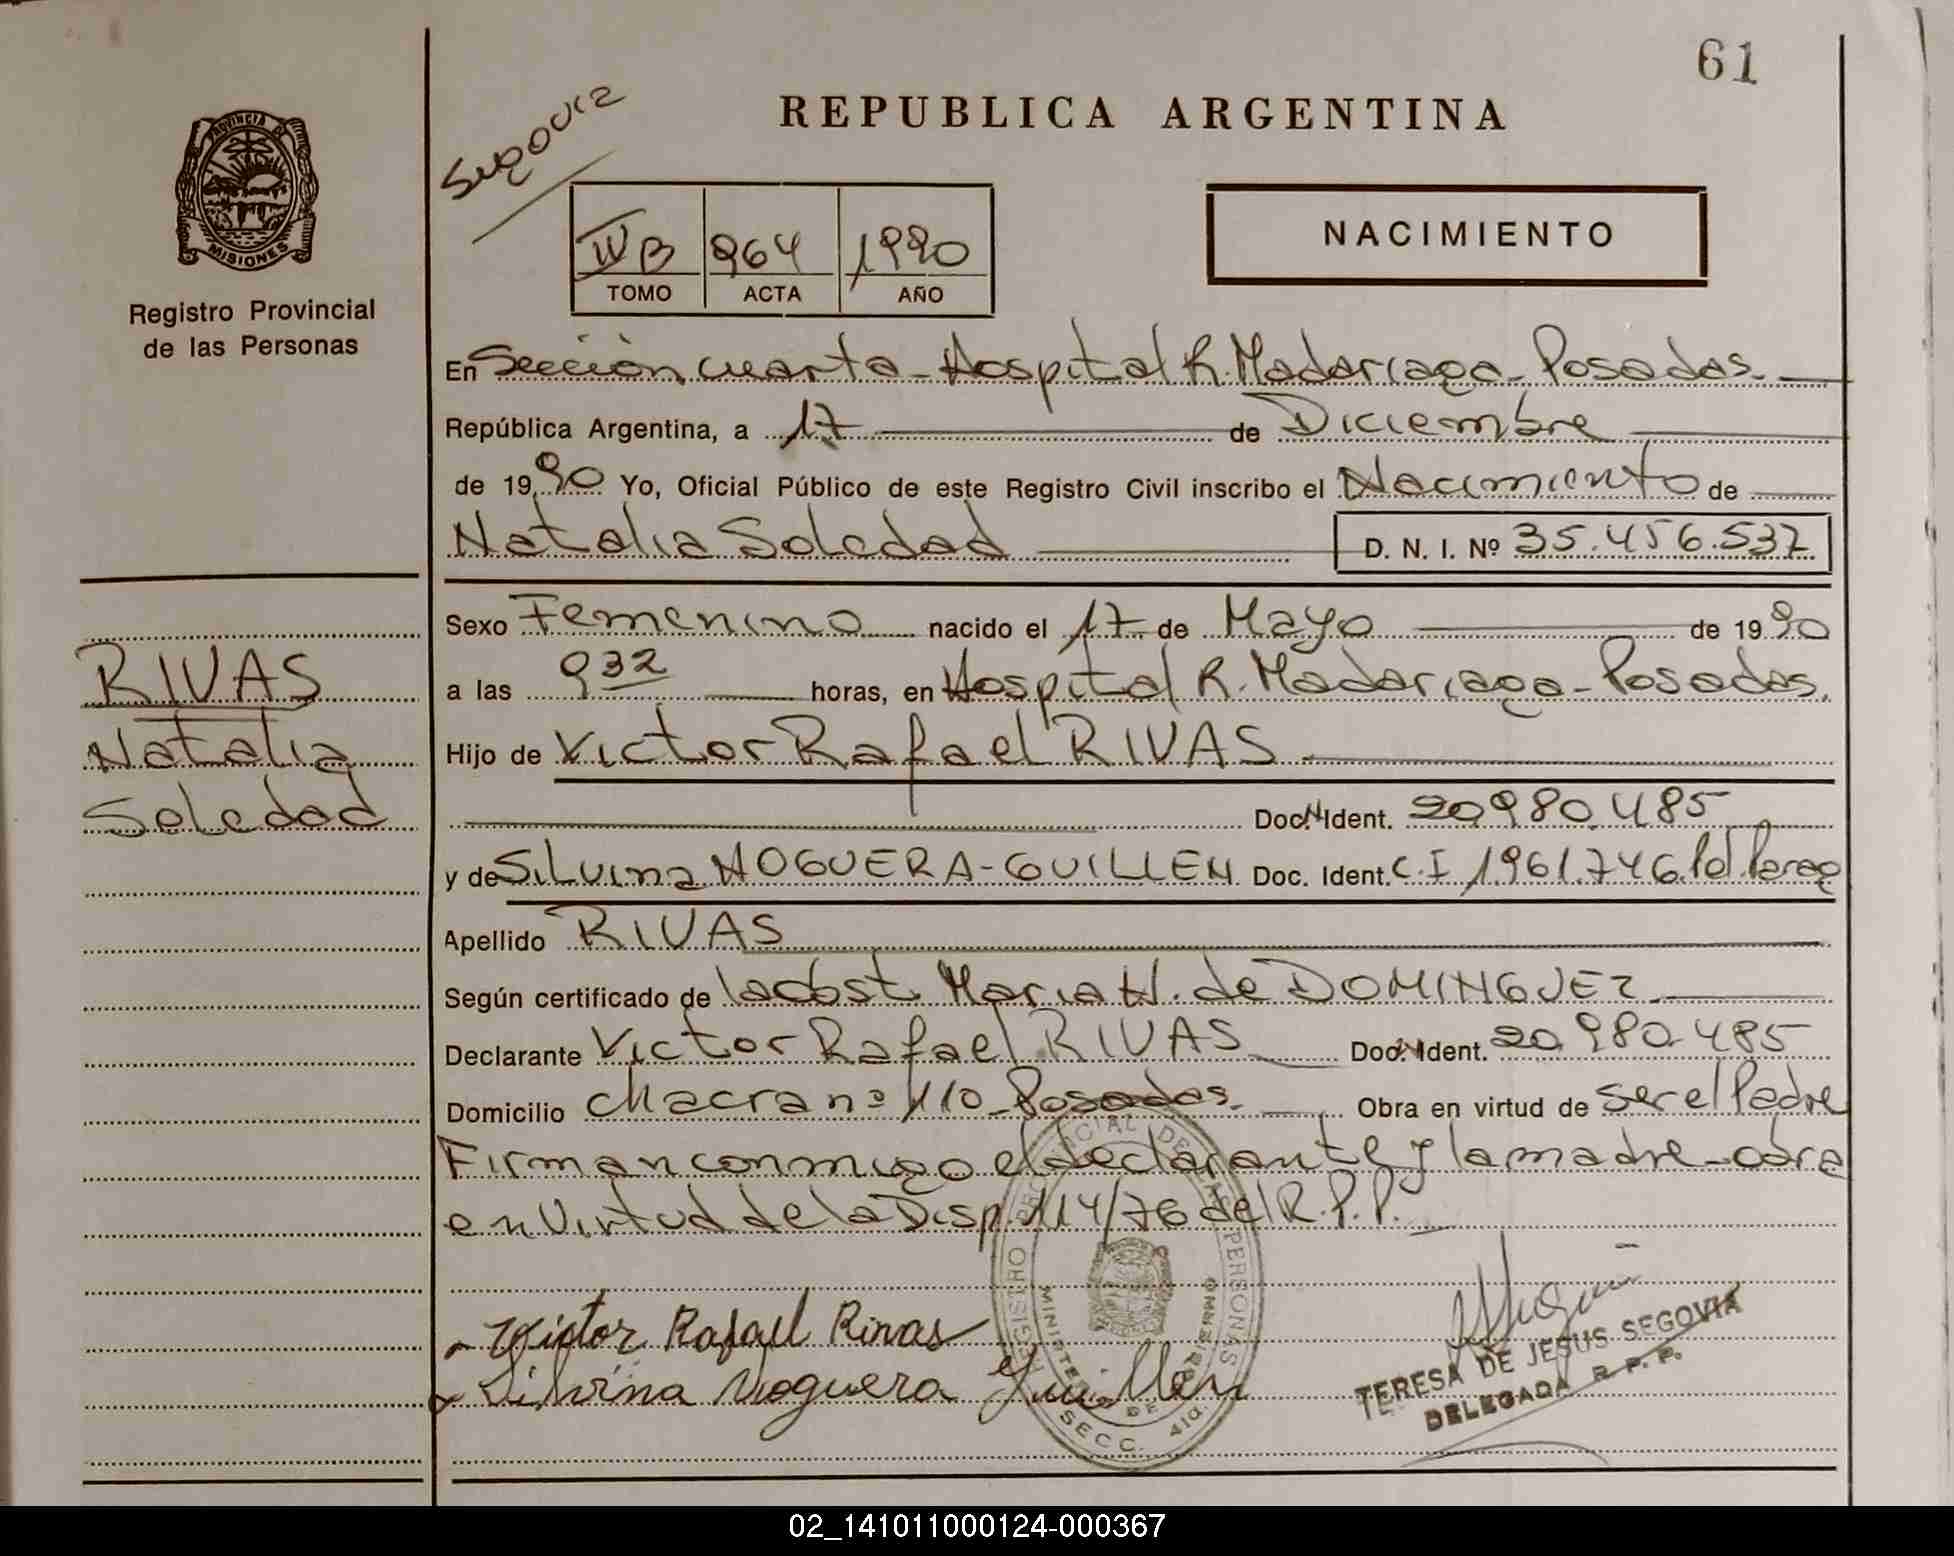 61
Segovia
REPUBLICA ARGENTINA
PROVINCIA DE
MISIONES
Registro Provincial
de las Personas
IV B 964 1990
TOMO ACTA AÑO
NACIMIENTO
En Sección cuarta - Hospital R. Madariaga - Posadas.
República Argentina, a 17 de Diciembre
de 1990 Yo, Oficial Público de este Registro Civil inscribo el Nacimiento de
Natalia Soledad D. N. I. Nº 35.456.537
Sexo Femenino nacido el 17 de Mayo de 1990
RIVAS
Natalia
Soledad
a las 9 32 horas, en Hospital R. Madariaga - Posadas.
Hijo de Victor Rafael RIVAS
Doc. N Ident. 20.980.485
y de Silvina NOGUERA-GUILLEN Doc. Ident. C.I 1.961.746. Pol. Parag
Apellido RIVAS
Según certificado de la obst. Maria N. de DOMINGUEZ
Declarante Victor Rafael RIVAS Doc. N Ident. 20.980.485
Domicilio Chacra nº 110 - Posadas. Obra en virtud de ser el Padre
Firman conmigo el declarante y la madre - obra
en Virtud de la Disp. 114/76 del R.P.P.
Victor Rafael Rivas
Silvina Noguera Guillen
REGISTRO PROVINCIAL DE LAS PERSONAS
MINISTERIO DE GOBIERNO
SECC. 4ta.
TERESA DE JESUS SEGOVIA
DELEGADA R. P. P.
02_141011000124-000367